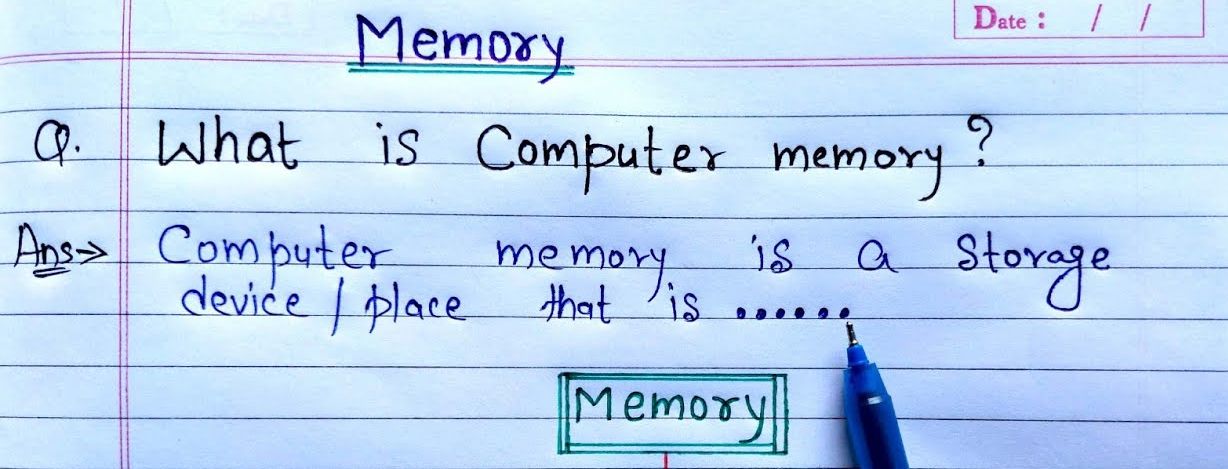 Date : / /
Memory
Q. What is Computer memory ?
Ans→ Computer memory is a Storage
device / place that is ......
Memory